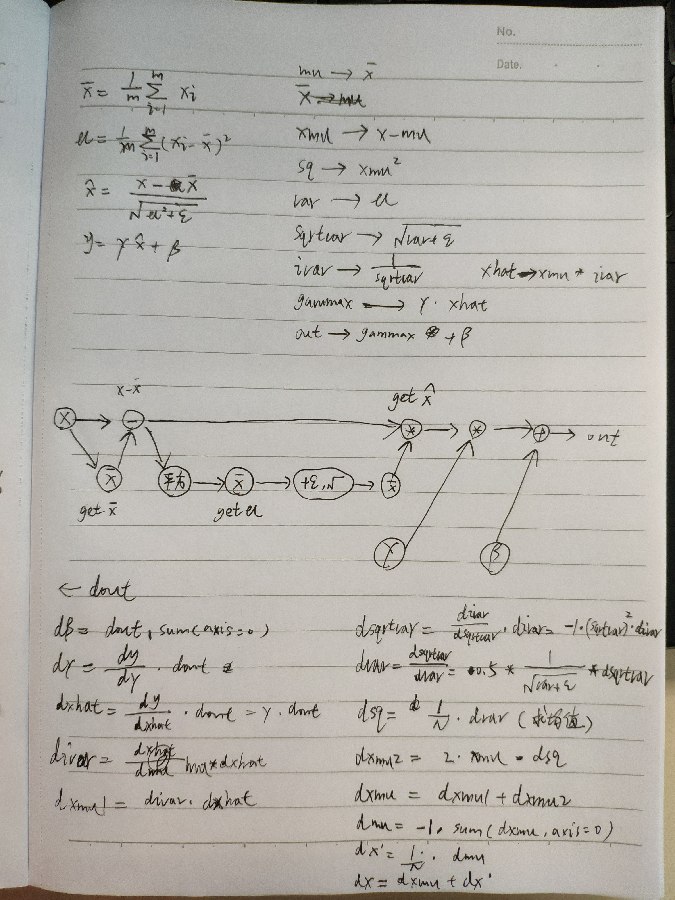 No.
Date.
x̄ = 1/m Σ_{i=1}^{m} xi
mu → x̄
u = 1/m Σ_{i=1}^{m} (xi - x̄)²
xmu → x-mu
sq → xmu²
x̂ = (x - x̄) / √(u²+ε)
var → u
y = γ x̂ + β
sqrtvar → √(var+ε)
ivar → 1/sqrtvar
xhat → xmu * ivar
gammax → γ · xhat
out → gammax + β
x-x̄
get x̂
x → - → * → * → + → out
x̄ 平方 → x̄ → +ε, √ → x̄
get x̄
get u
γ β
← dout
dβ = dout, sum(axis=0)
dγ = dy/dγ · dout
dxhat = dy/dxhat · dout = γ · dout
divar = mu*dxhat
dxmu1 = divar · dxhat
dsqrtvar = divar/dsqrtvar · divar = -1·(sqrtvar)²·divar
dvar = dsqrtvar/dvar = 0.5 * 1/√(var+ε) * dsqrtvar
dsq = 1/N · dvar (求均值)
dxmu2 = 2 · xmu · dsq
dxmu = dxmu1 + dxmu2
dmu = -1 · sum(dxmu, axis=0)
dx' = 1/N · dmu
dx = dxmu + dx'